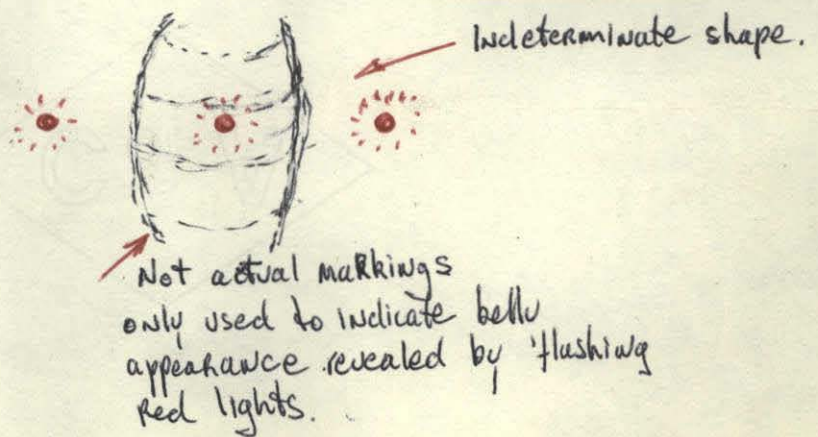 Indeterminate shape.
Not actual markings
only used to indicate belly
appearance revealed by 'flashing
Red lights.